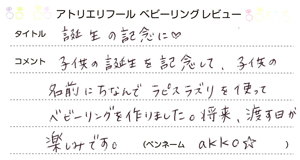 アトリエリフール ベビーリングレビュー
タイトル 誕生の記念に♡
コメント 子供の誕生を記念して、子供の
名前にちなんで ラピスラズリを使って
ベビーリングを作りました。将来、渡す日が
楽しみです。 (ペンネーム akko☆ )